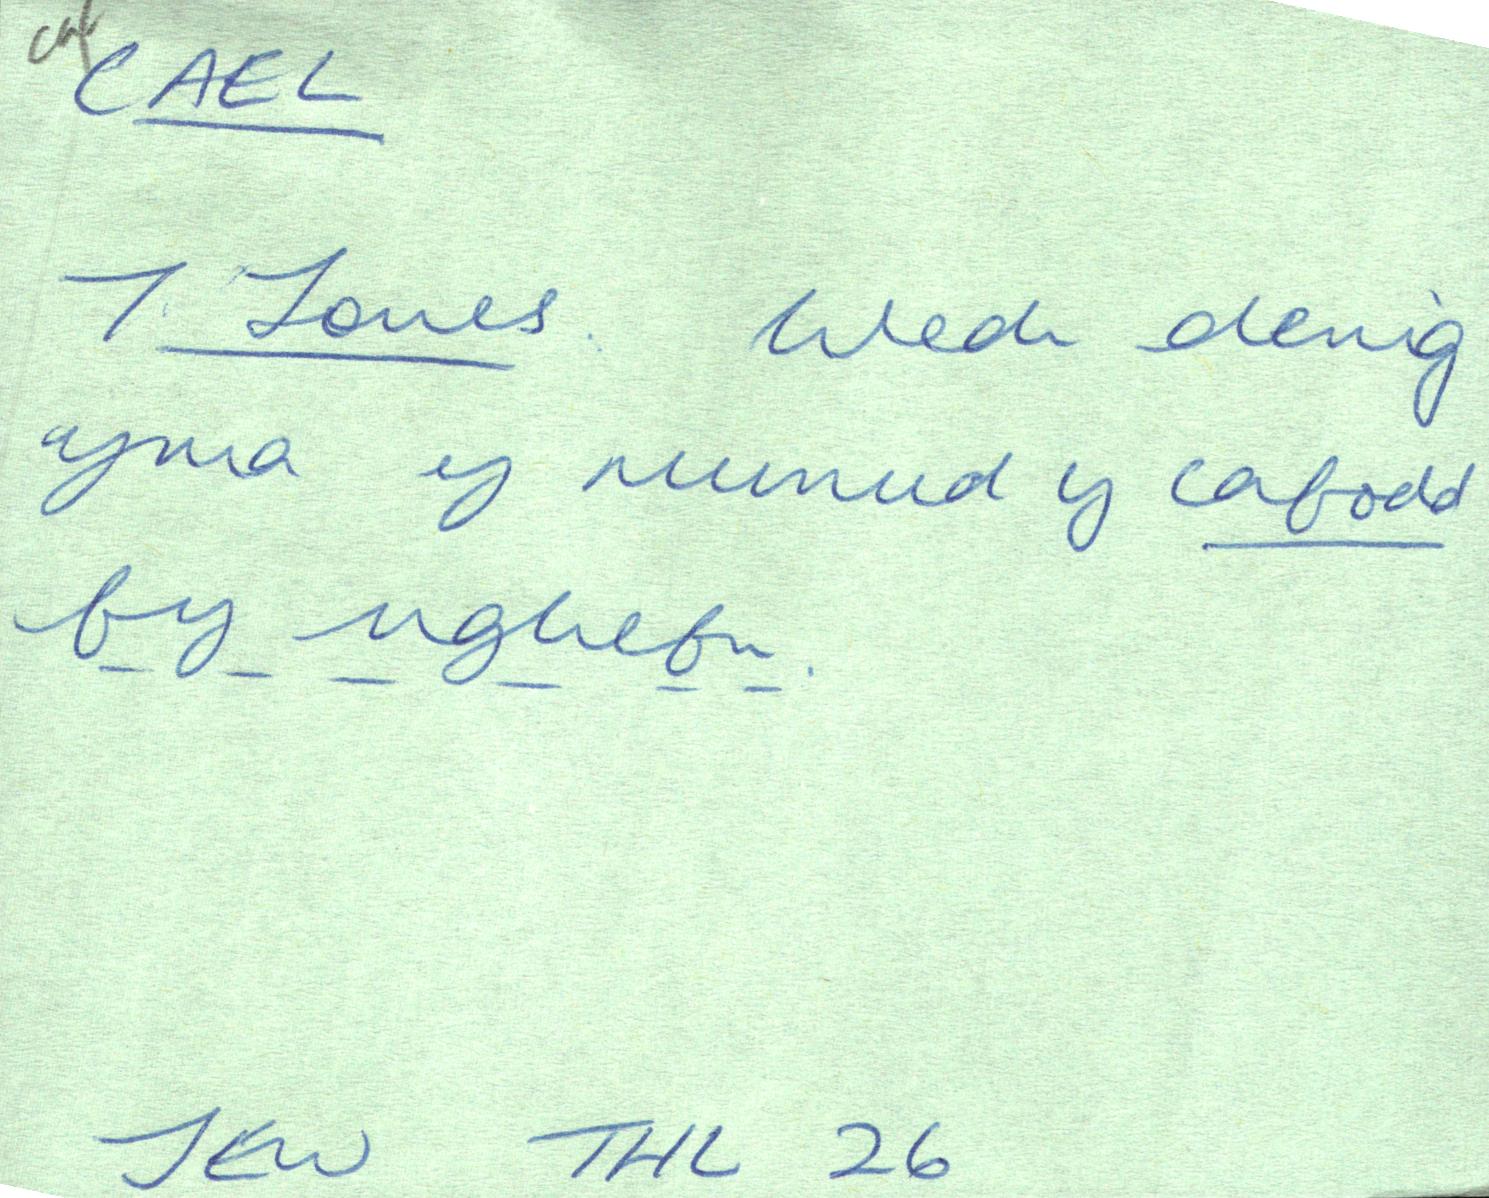 caf
CAEL
T. Jones. Wedi dengig
yma y munud y cafodd
fy nghefn.
JEW THL 26